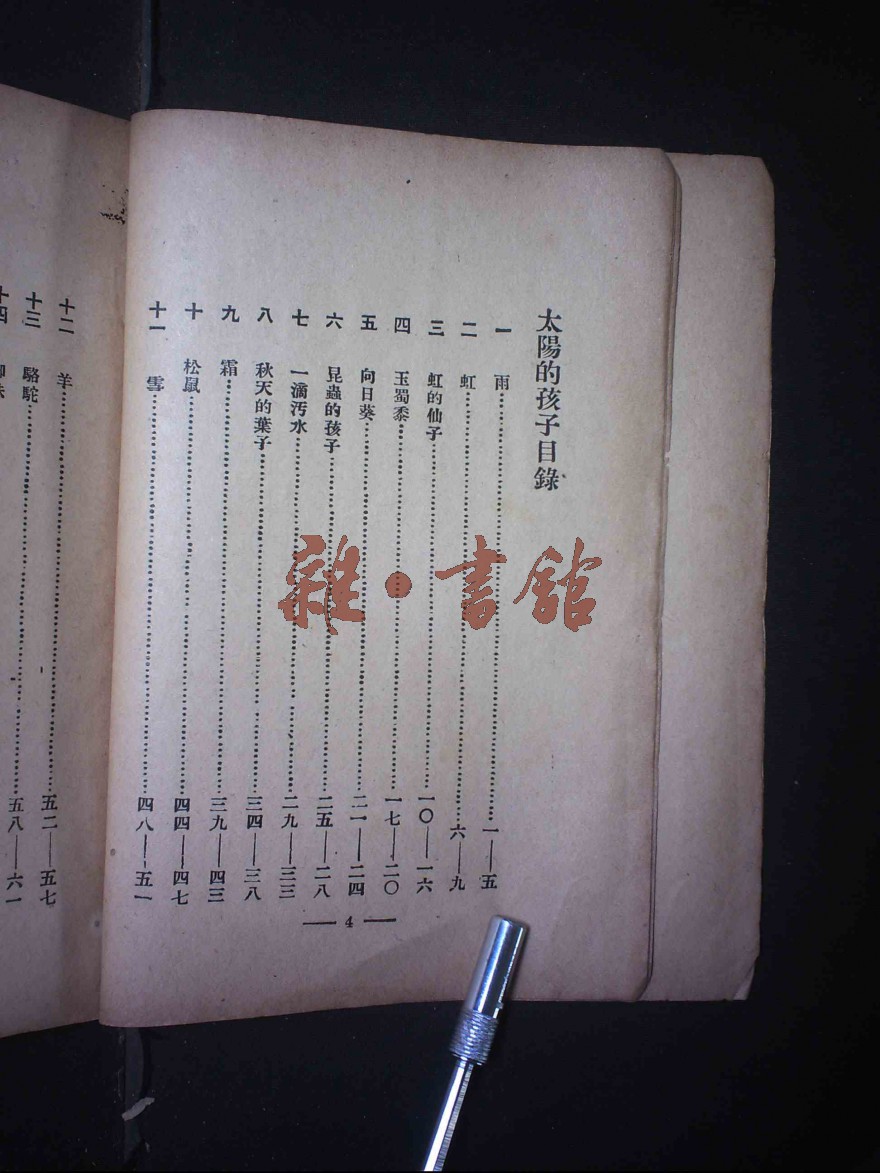 太陽的孩子目錄
一 雨……一——五
二 虹……六——九
三 虹的仙子……一〇——一六
四 玉蜀黍……一七——二〇
五 向日葵……二一——二四
六 昆蟲的孩子……二五——二八
七 一滴汚水……二九——三三
八 秋天的葉子……三四——三八
九 霜……三九——四三
十 松鼠……四四——四七
十一 雪……四八——五一
— 4 —
十二 羊……五二——五七
十三 駱駝……五八——六一
十四
雜·書館